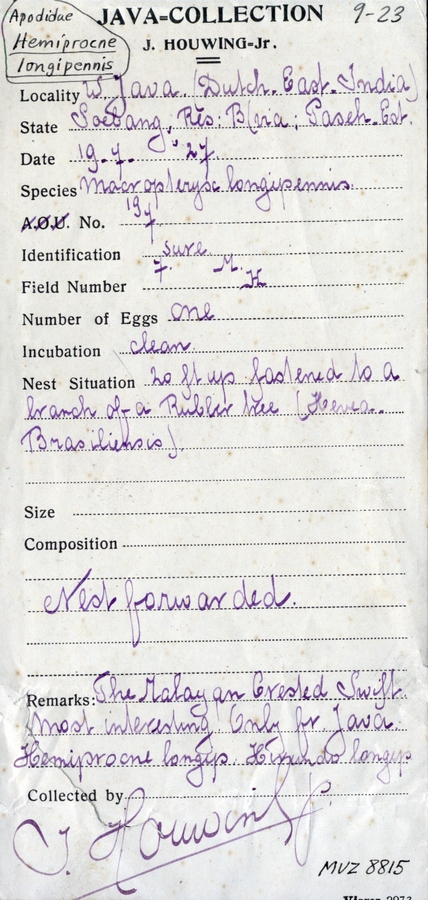 Apodidae
Hemiprocne
longipennis
JAVA=COLLECTION
9-23
J. HOUWING-Jr.
Locality W. Java (Dutch. East. India)
State Soebang, Res: B/via; Paseh. Est.
Date 19-7- '27
Species Macropteryx longipennis
A.O.U. No. 197
Identification sure
Field Number 7. M. H
Number of Eggs one
Incubation clean
Nest Situation 20 ft up fastened to a
branch of a Rubber tree (Hevea
Brasiliensis)
Size
Composition
Nest forwarded.
Remarks: The Malayan Crested Swift.
Most interesting! Only for Java.
Hemiprocne longip. Hirundo longip
Collected by
J. Houwing Jr.
MVZ 8815